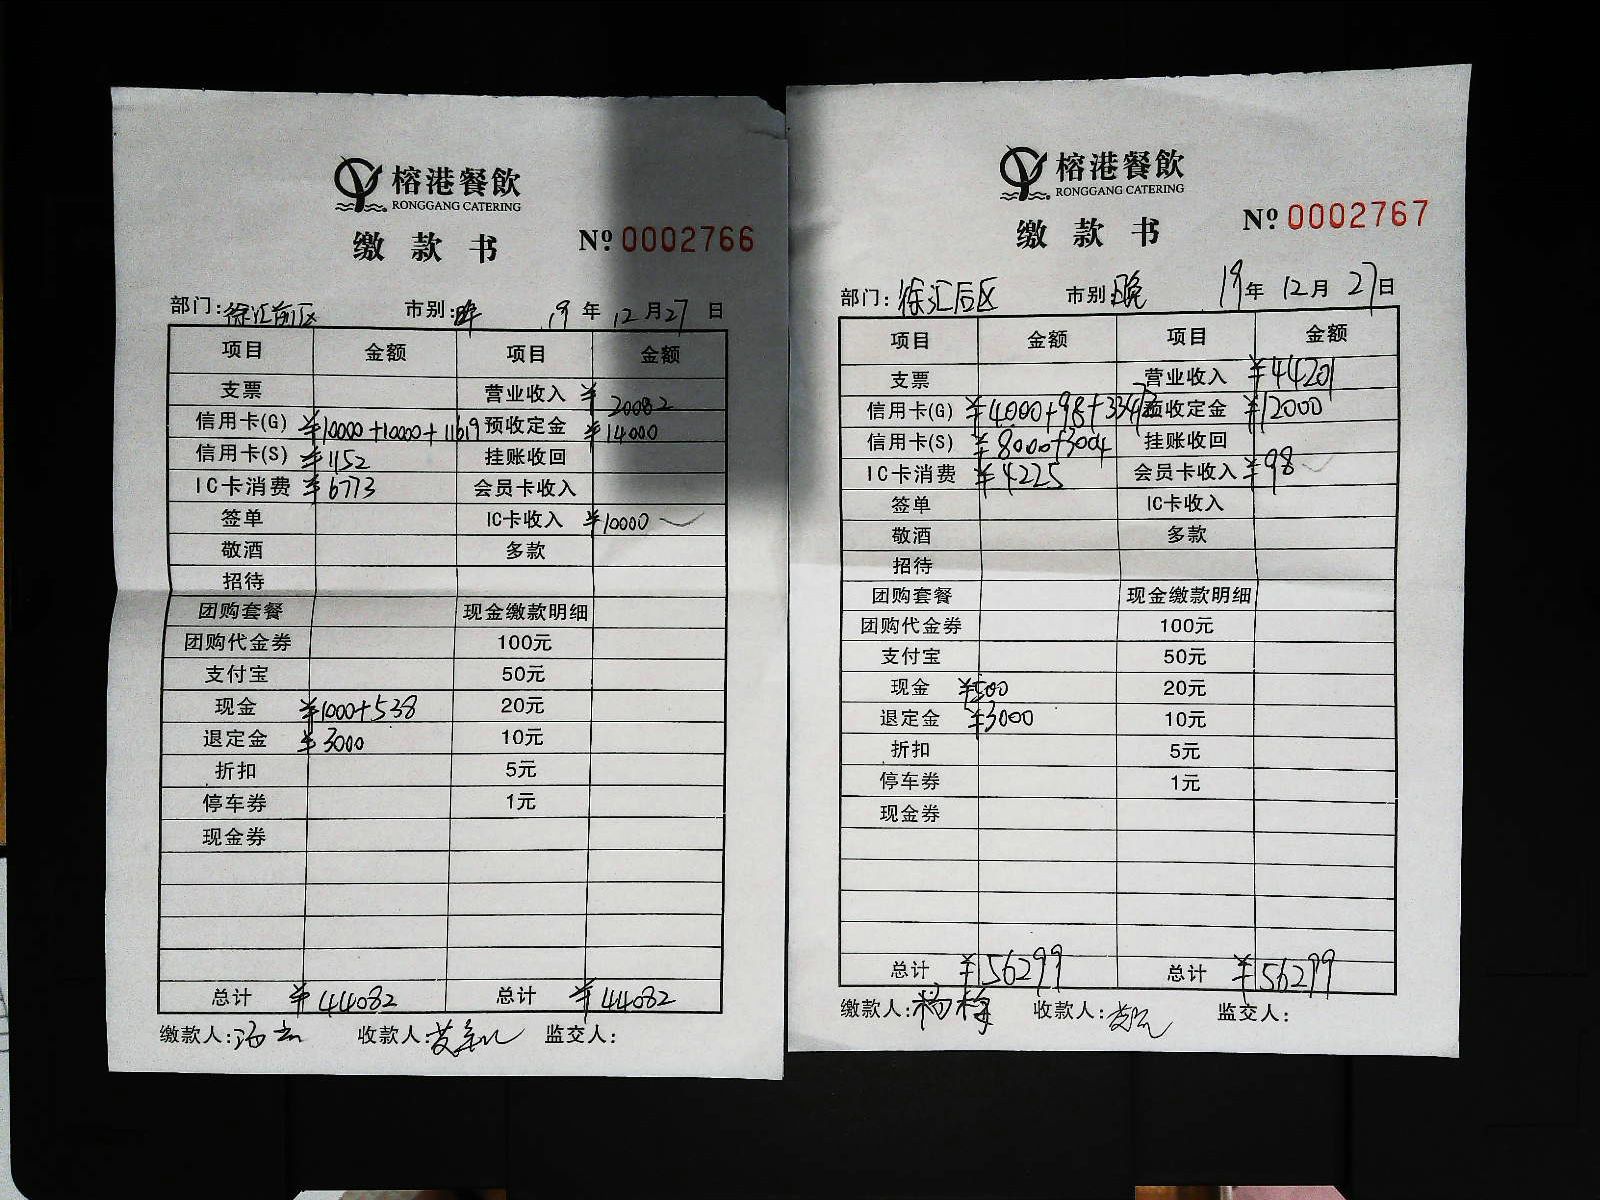 榕港餐飲
RONGGANG CATERING
缴款书
№ 0002766
部门: 徐汇前区 市别: 19年12月27日
项目 金额 项目 金额
支票 营业收入 ¥20082
信用卡(G) ¥10000+10000+11619 预收定金 ¥14000
信用卡(S) ¥1152 挂账收回
IC卡消费 ¥6773 会员卡收入
签单 IC卡收入 ¥10000 ✓
敬酒 多款
招待
团购套餐 现金缴款明细
团购代金券 100元
支付宝 50元
现金 ¥1000+538 20元
退定金 ¥3000 10元
折扣 5元
停车券 1元
现金券
总计 ¥44082 总计 ¥44082
缴款人: 收款人: 监交人:
榕港餐飲
RONGGANG CATERING
缴款书
№ 0002767
部门: 徐汇后区 市别: 晚 19年12月27日
项目 金额 项目 金额
支票 营业收入 ¥44201
信用卡(G) ¥4000+98+33472 预收定金 ¥12000
信用卡(S) ¥8000+3004 挂账收回
IC卡消费 ¥4225 会员卡收入 ¥98 ✓
签单 IC卡收入
敬酒 多款
招待
团购套餐 现金缴款明细
团购代金券 100元
支付宝 50元
现金 ¥500 20元
退定金 ¥3000 10元
折扣 5元
停车券 1元
现金券
总计 ¥56299 总计 ¥56299
缴款人: 收款人: 监交人: